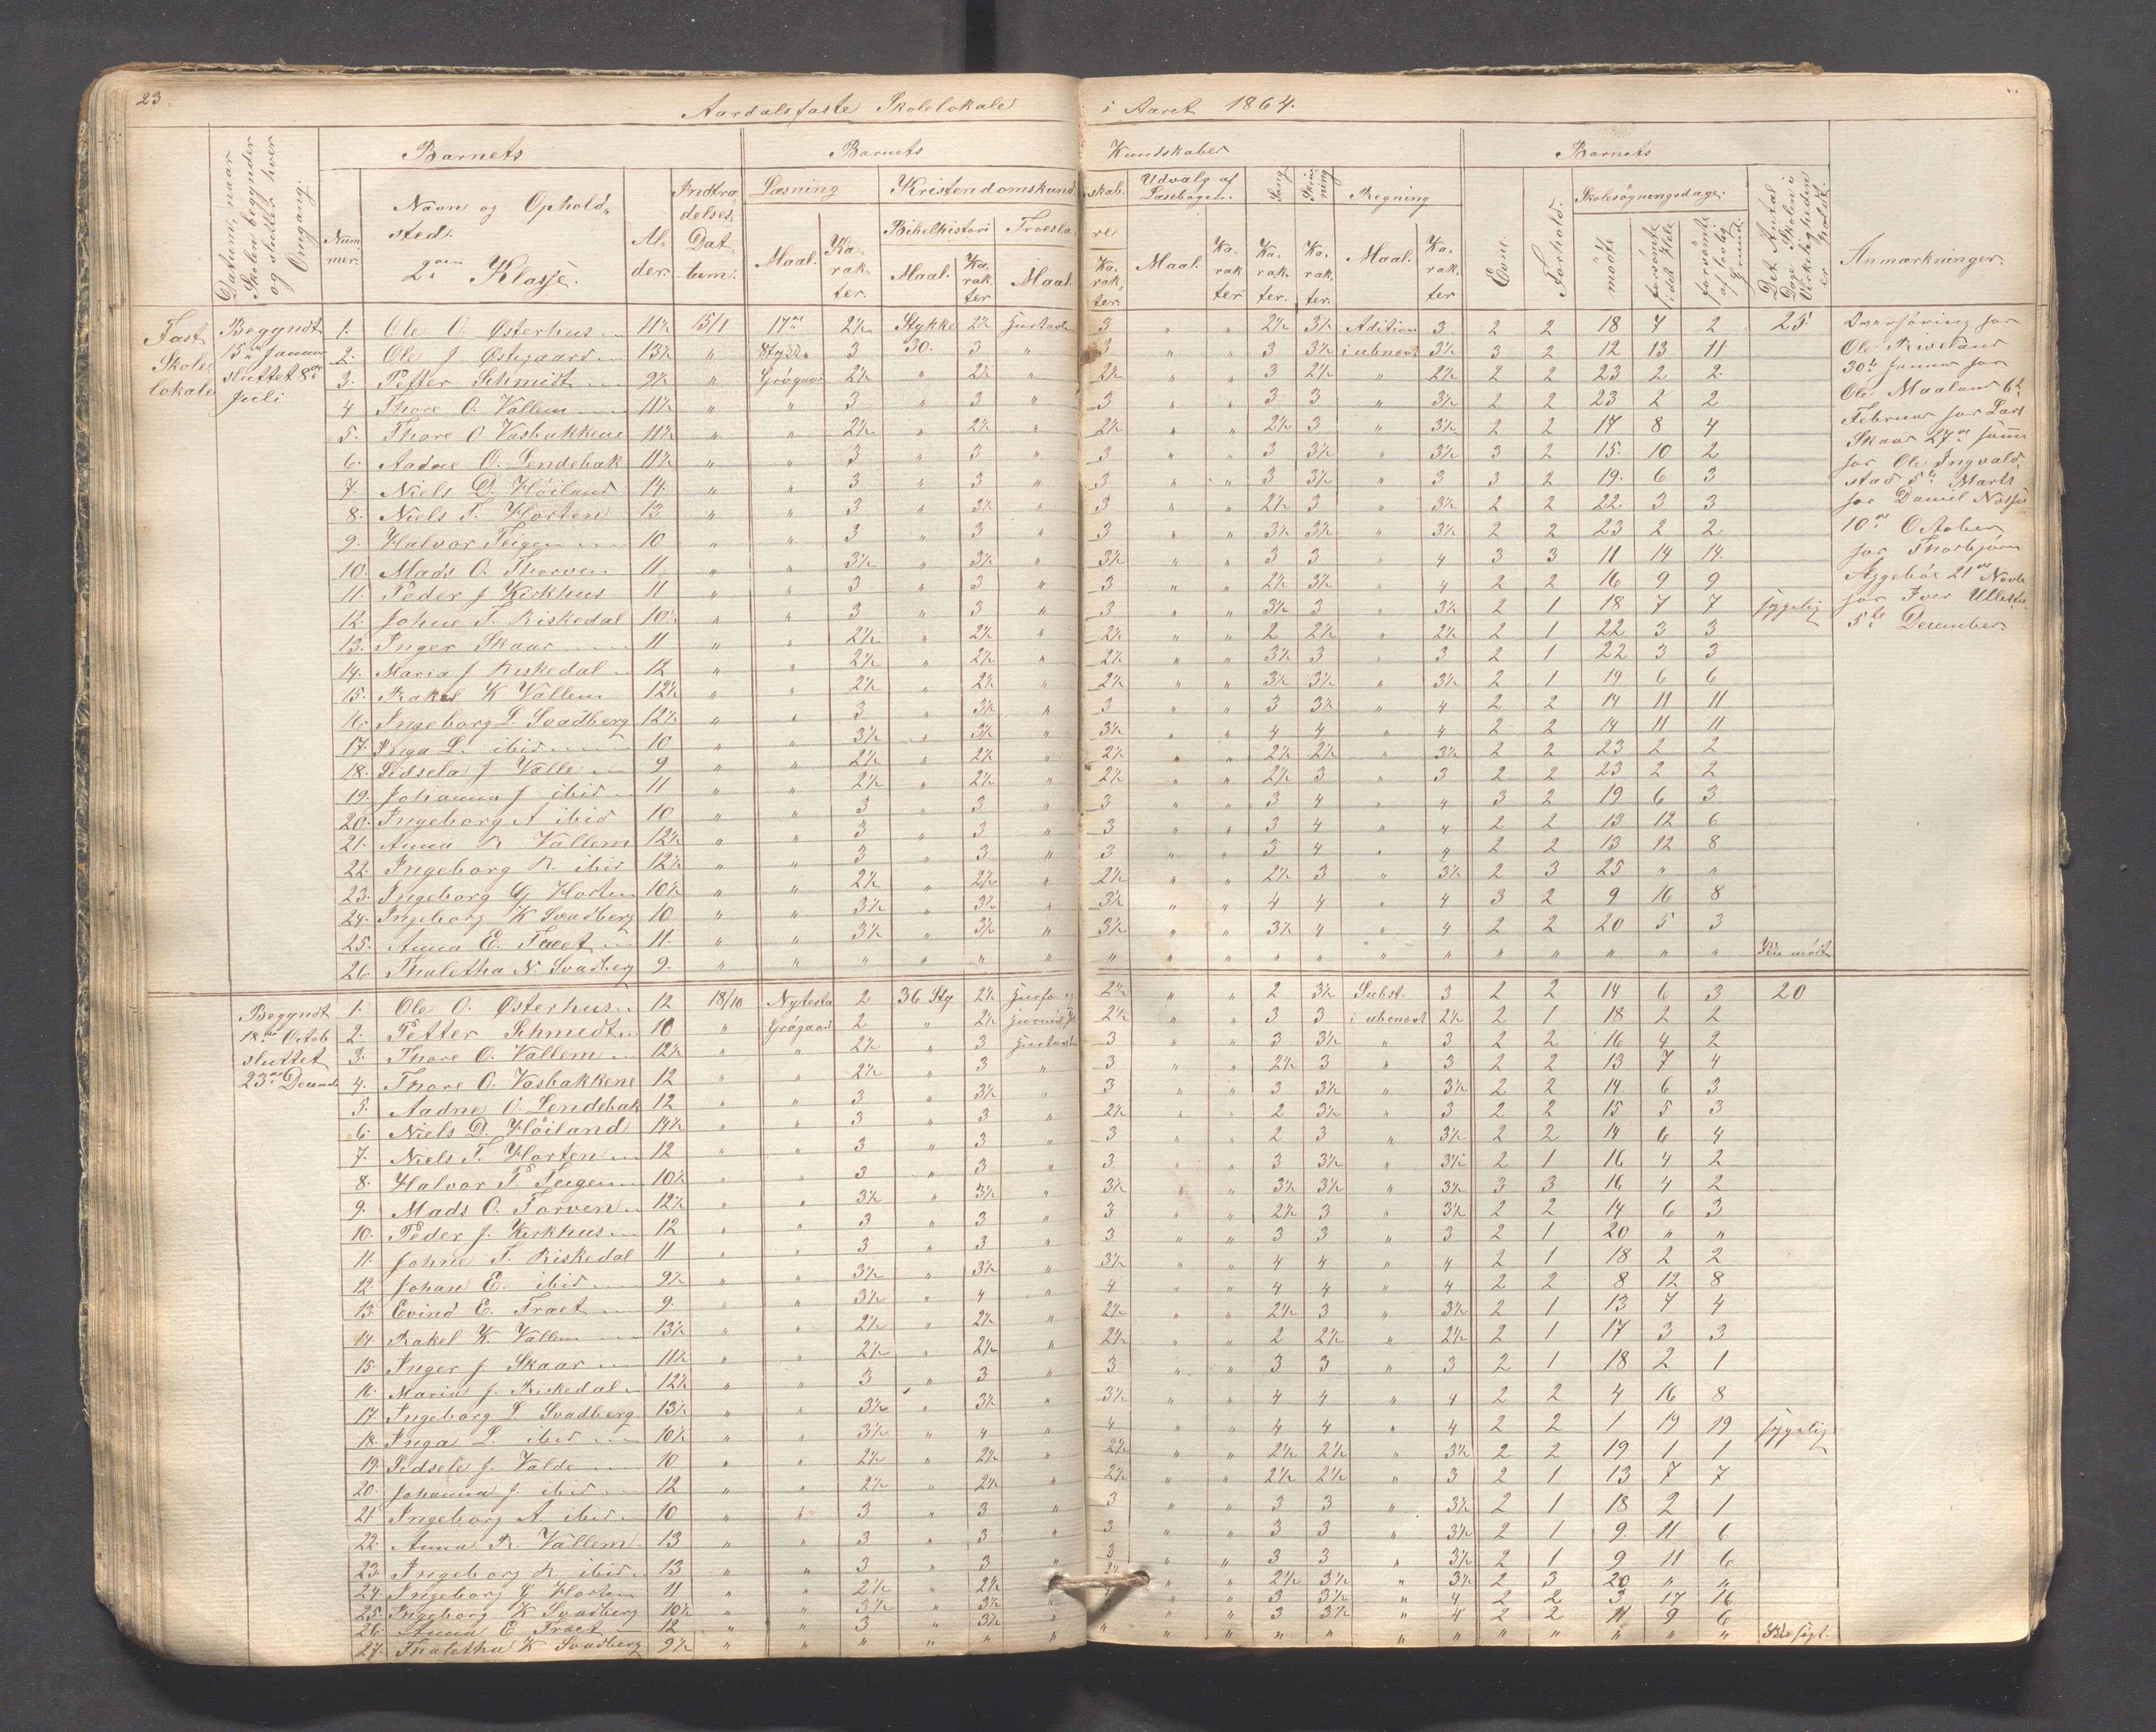 23.
Aardals faste Skolelokale i Aaret 1864.
Datum, naar Skolen begynder og slutter hver Omgang.
Barnets
Barnets Kundskaber
Barnets
Nummer.
Navn og Opholdssted.
2den Klasse.
Alder.
Indtrædelses Datum.
Læsning
Maal.
Karakter.
Kristendomskundskab.
Bibelhistori
Maal.
Karakter
Troeslære
Maal.
Karakter.
Udvalg af Læsebogen.
Maal.
Karakter
Sang
Karakter.
Skrivning
Karakter.
Regning
Maal.
Karakter
Evne.
Forhold.
Skolesögningsdage.
mödte
forsömte i det Hele
forsömte af lovlig Grund.
Det Antal Dage Skolen i Virkeligheden er holdt.
Anmærkninger.
Fast Skolelokale
Begyndt 15de Januar sluttet 8de Juli
1. Ole O. Østerhus 11½ 15/1 17de 2½ Stykke 2½ 3 " " 2½ 3½ Adition 3 2 2 18 7 2 25
2. Ole J Østigaard 13½ " 3 30. 3 " 3 " " 3 3½ i ubenævt 3½ 3 2 12 13 11
3. Petter Schmidt 9½ " Grögaard 2½ " 2½ " 2½ " " 3 2½ " 2½ 2 2 23 2 2
4 Thore O. Vallem 11½ " " 3 " 3 " 3 " " 3 3 " 3½ 2 2 23 2 2
5. Thore O Vasbakkene 11½ " " 2½ " 2½ " 2½ " " 2½ 3 " 3½ 2 2 17 8 4
6. Aadne O. Lendebak 11½ " " 3 " 3 " 3 " " 3 3½ " 3½ 3 2 15. 10 2
7. Niels D. Höiland 14. " " 3 " 3 " 3 " " 3 3½ " 3 3 2 19. 6 3
8. Niels T. Horten 13 " " 3 " 3½ " 3 " " 2½ 3 " 3½ 2 2 22 3 3
9. Halvor Teigen 10 " " 3 " 3 " 3 " " 3½ 3½ " 3½ 2 2 23 2 2
10. Mads O. Thorven 11 " " 3½ " 3½ " 3½ " " 3 3 " 4 3 3 11 14 14.
11. Peder J Kirkhus 11 " " 3 " 3 " 3 " " 2½ 3½ " 4 2 2 16 9 9
12. Johne T. Riskedal 10½ " " 3 " 3 " 3 " " 3½ 3 " 3½ 2 1 18 7 7 sygelig
13. Inger Skaar 11 " " 2½ " 2½ " 2½ " " 2 2½ " 2½ 2 1 22 3 3
14. Maria J Riskedal 12 " " 2½ " 2½ " 2½ " " 3½ 3 " 3 2 1 22 3 3
15. Rakel K Vallem 12½ " " 2½ " 2½ " 2½ " " 3½ 3½ " 3½ 2 1 19 6 6
16. Ingeborg L. Svadberg 12½ " " 3 " 3½ " 3 " " 3 3½ " 4 2 2 14 11 11
17. Inga L. ibid 10 " " 3½ " 3½ " 3½ " " 4 4 " 4 2 2 14 11 11
18. Sidsela J Valle 9 " " 2½ " 2½ " 2½ " " 2½ 2½ " 3½ 2 2 23 2 2
19. Johanna J ibid 11 " " 2½ " 2½ " 2½ " " 2½ 3 " 3 2 2 23 2 2
20. Ingeborg A ibid 10 " " 3 " 3 " 3 " " 3 4 " 4 3 2 19 6 3
21. Anna R Vallem 12½ " " 3 " 3 " 3 " " 3 4 " 4 2 2 13 12 6
22. Ingeborg R. ibid 12½ " " 3 " 3 " 3 " " 3 4 " 4 2 2 13 12 8
23. Ingeborg G Horten 10½ " " 2½ " 2½ " 2½ " " 2½ 3 " 3½ 2 3 25 " "
24. Ingeborg K Svadberg 10 " " 3½ " 3½ " 3½ " " 4 4 " 4 3 2 9 16 8
25. Anna E. Traet 11. " " 3½ " 3½ " 3½ " " 3½ 4 " 4 2 2 20 5 3
26. Thaletha N. Svadberg 9. " " " " " " " " " " " " " " " " " " Ikke mödt
Overföring for
Ole Riveland
30te Januar for
Ole Maaland 6te
Februar for Lars
Skaar 27de
for Ole Ingvald.
stad 5te Marts
for Daniel
10de October
for Thorbjörn
Aggebös 21de Novb
for Iver
5te December.
Begyndt 18de Octob sluttet 23de Decemb
1. Ole O. Østerhus 12 18/10 Nytesta 2 36 Sty 2½ 2½ " " 2 3½ Subst. 3 2 2 14 6 3 20
2. Petter Schmidt 10 " Grögaard 2 " 2½ 2½ " " 3 3 i ubenævt 2½ 2 1 18 2 2
3. Thore O. Vallem 12½ " " 2½ " 3 3 " " 3 3½ " 3 2 2 16 4 2
4. Thore O. Vasbakkene 12 " " 2½ " 3 " 3 " " 2½ 3 " 3 2 2 13 7 4
5. Aadne O. Lendebak 12 " " 3 " 3½ " 3 " " 3 3½ " 3½ 2 2 14. 6 3
6. Niels D. Höiland 14½ " " 3 " 3 " 2½ " " 2 3½ " 3 2 2 15 5 3
7. Niels T. Horten 12 " " 3 " 3 " 3 " " 2 3 " 3½ 2 2 14 6 4
8. Halvor T. Teigen 10½ " " 3 " 3 " 3 " " 3 3½ " 3½ 2 1 16 4 2
9. Mads O. Torven 12½ " " 3½ " 3½ " 3½ " " 3½ 3½ " 3½ 3 3 16 4 2
10. Peder J. Kirkhus 12 " " 3 " 3 " 3 " " 2½ 3 " 3½ 2 2 14 6 3
11. Johne T. Riskedal 11 " " 3 " 3 " 3 " " 3 3 " 3 2 1 20 " "
12. Johan E. ibid 9½ " " 3½ " 3½ " 3½ " " 4 4 " 4 2 1 18 2 2
13. Evind E. Traet 9. " " 3½ " 4 " 4 " " 4 4 " 4 2 2 8 12 8
14. Rakel K. Vallem 13½ " " 2½ " 2½ " 2½ " " 2½ 3 " 3½ 2 1 13 7 4
15. Inger J Skaar 11½ " " 2½ " 2½ " 2½ " " 2 2½ " 2½ 2 1 17 3 3
16. Maria J. Riskedal 12½ " " 3 " 3 " 3 " " 3 3 " 3 2 1 18 2 1
17. Ingeborg L. Svadberg 13½ " " 3½ " 3½ " 3½ " " 4 4 " 4 2 2 4 16 8
18. Inga L. ibid 10½ " " 3½ " 4 " 4 " " 4 4 " 4 2 2 1 19 19 sygelig
19. Sidsele J. Valde 10 " " 2½ " 2½ " 2½ " " 2½ 2½ " 3½ 2 2 19 1 1
20. Johanna J. ibid 12 " " 2½ " 2½ " 2½ " " 2½ 2½ " 3 2 1 13 7 7
21. Ingeborg A. ibid 10 " " 3 " 3 " 3 " " 3 3 " 3½ 2 1 18 2 1
22. Anna R. Vallem 13 " " 3 " 3 " 3 " " 3 3 " 3½ 2 1 9. 11 6
23. Ingeborg R ibid 13 " " 3 " 3 " 3 " " 3 3 " 3½ 2 1 9 11 6
24. Ingeborg G Horten 11 " " 2½ " 2½ " 2½ " " 2½ 3½ " 3½ 2 3 20 " "
25. Ingeborg K Svadberg 10½ " " 3½ " 3½ " " " 3 3½ " 4 2 2 3 17 16
26. Anna E Traet 12 " " 3 " 3½ " " " 3 3½ " 4 2 2 11 9 6
27. Thaletha K Svadberg 9½ " " " " " " " " " " " " " " " " " "